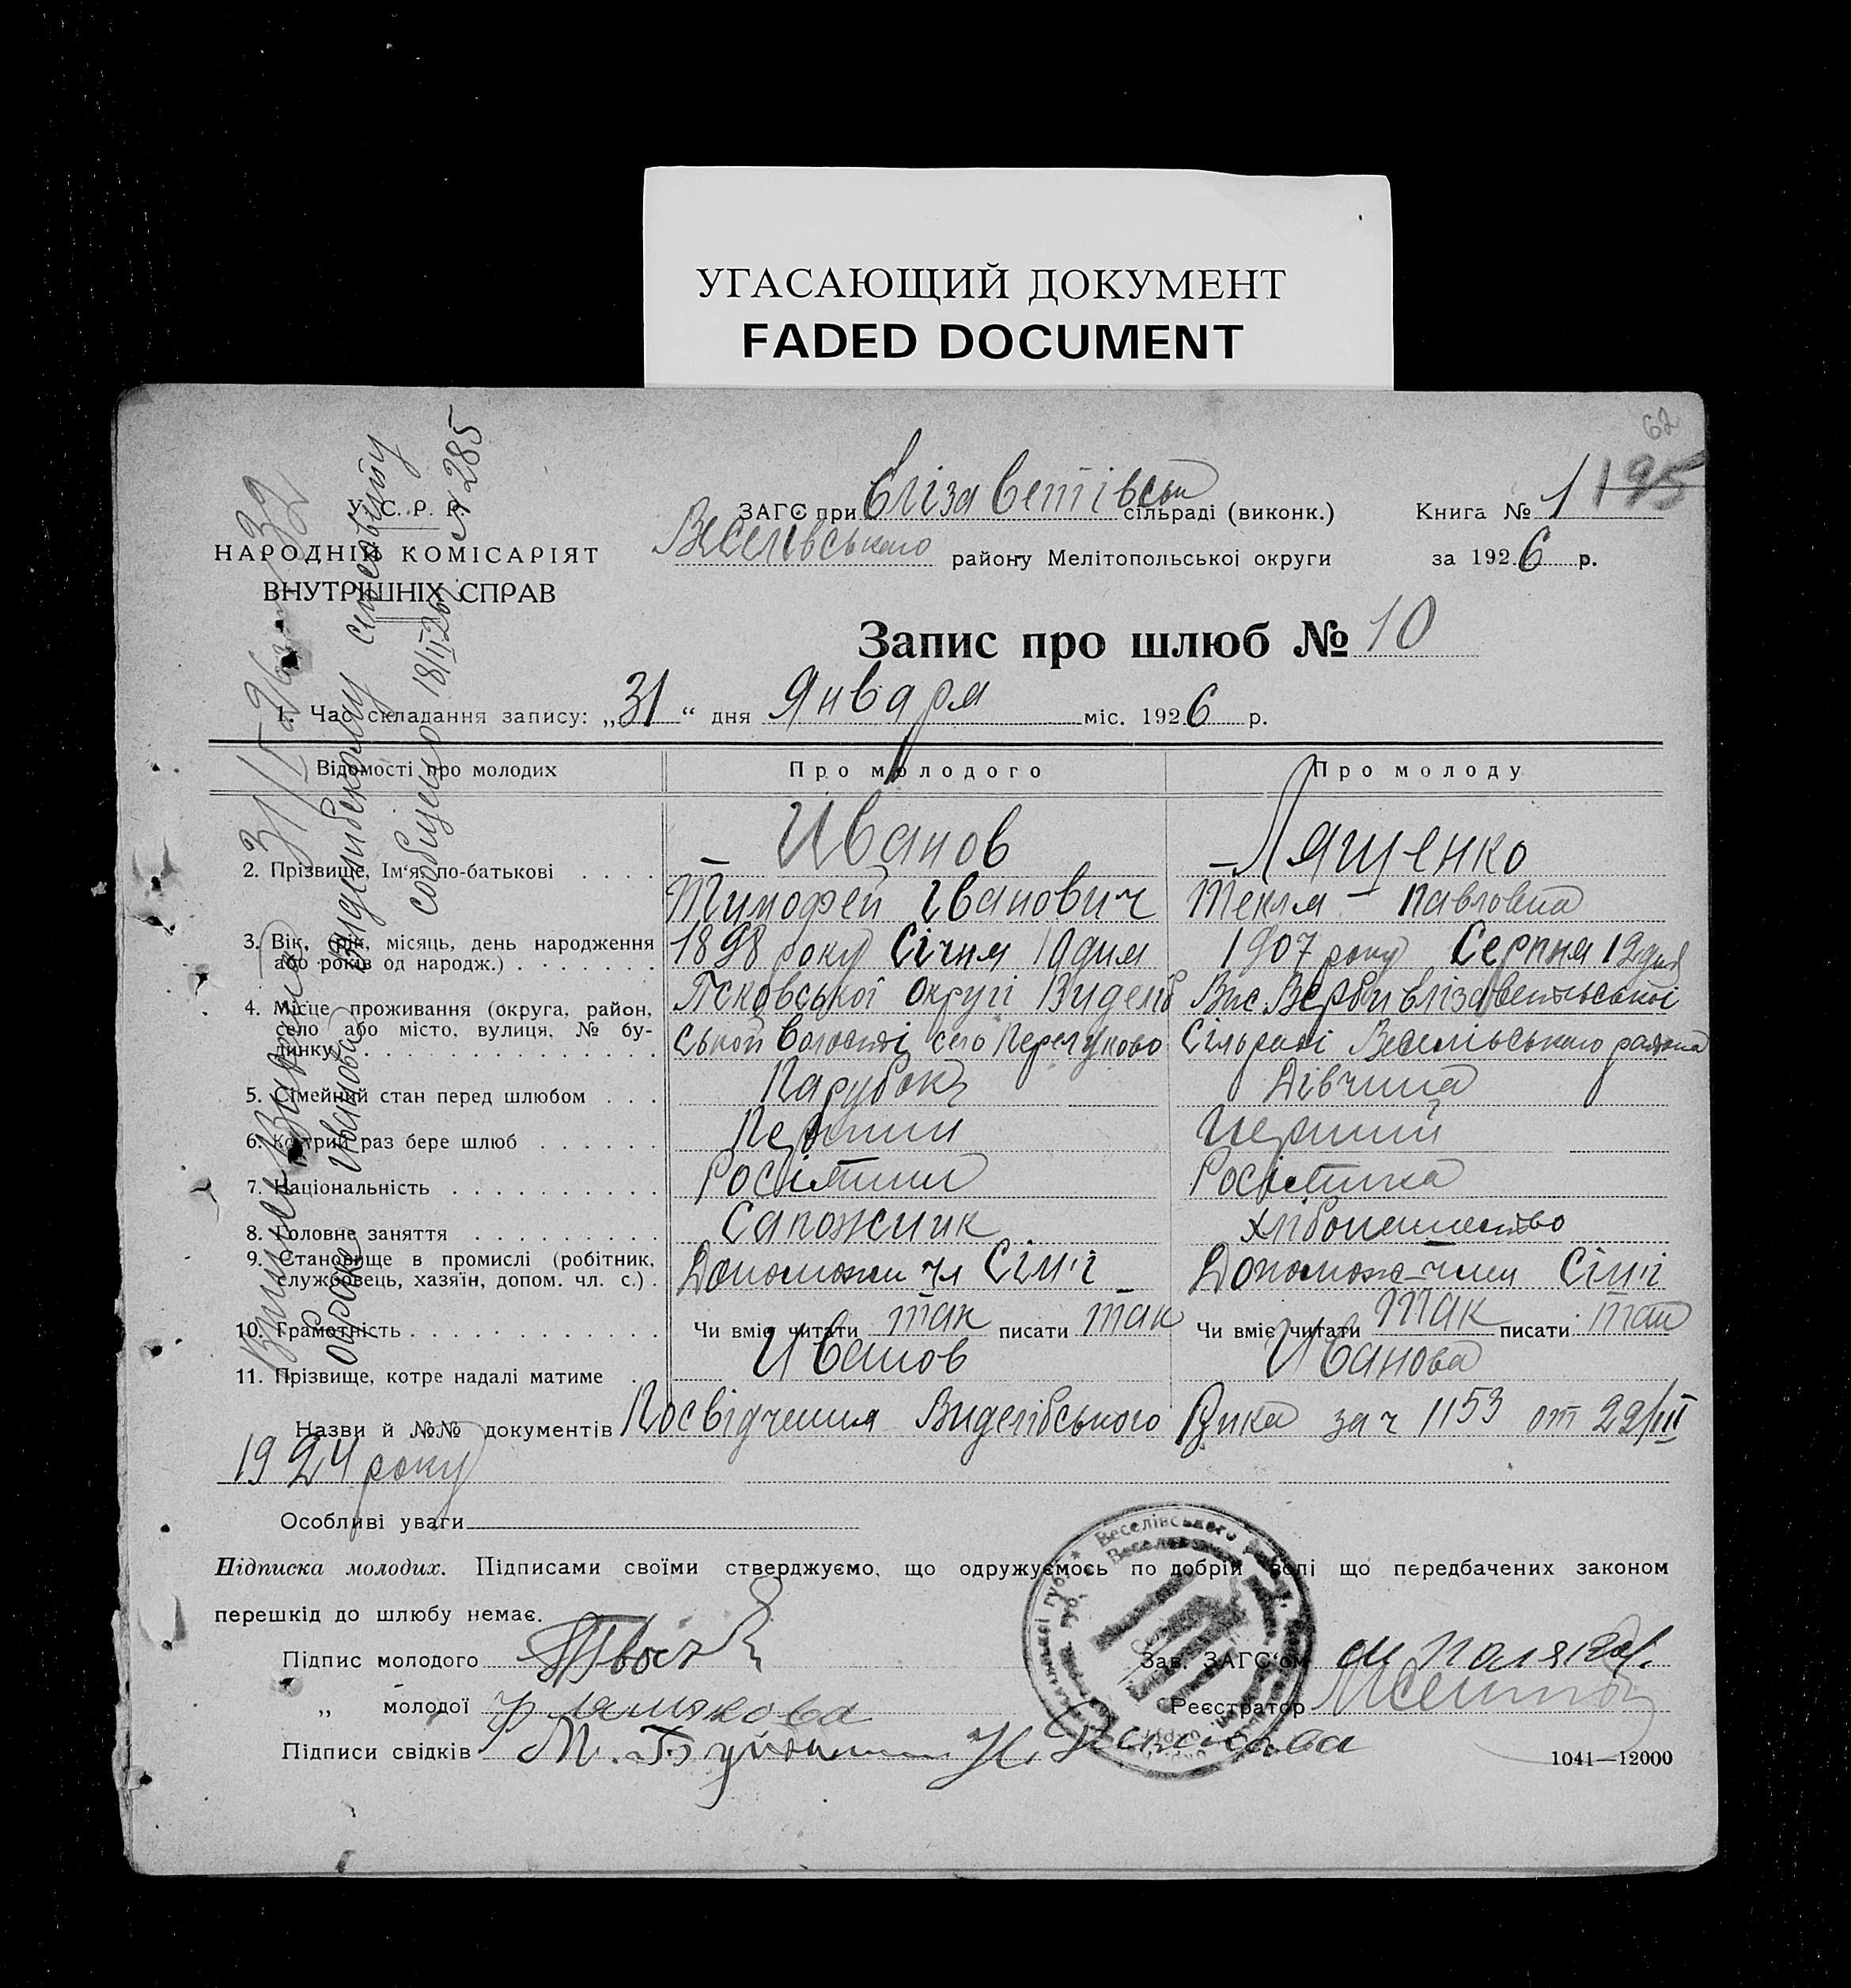 УГАСАЮЩИЙ ДОКУМЕНТ
FADED DOCUMENT
62
195
У. С. Р. Р.
НАРОДНІЙ КОМІСАРІЯТ
ВНУТРІШНІХ СПРАВ
ЗАГС при Єлізаветівськ сільраді (виконк.)
Веселівського району Мелітопольської округи
Книга № 1
за 1926 р.
Запис про шлюб № 10
1. Час складання запису: „31“ дня Января міс. 1926 р.
Відомості про молодих Про молодого Про молоду
2. Прізвище, Ім'я, по-батькові . . . . Иванов Лященко
Тимофей Іванович Текля - Павловна
3. Вік, (рік, місяць, день народження або років од народж.) . . . . . . . 1898 року Січня 10 дня 1907 року Серпня 12 дня
4. Місце проживання (округа, район, село або місто, вулиця, № будинку) . . . . Псковської Округі Виделібської Волості село Перелуково Вис. Верби Єлізаветівської Сільраді Веселівського района
5. Сімейний стан перед шлюбом . . . Парубок Дівчина
6. Котрий раз бере шлюб . . . . . . Первий Перший
7. Національність . . . . . . . . . . Росіятин Росіятка
8. Головне заняття . . . . . . . . . Сапожник
9. Становище в промислі (робітник, службовець, хазяїн, допом. чл. с.) . Допоможн чл Сім'ї Допоможн-член Сім'ї
10. Грамотність . . . . . . . . . . . . Чи вміє читати так писати так Чи вміє читати так писати так
11. Прізвище, котре надалі матиме . Иванов Иванова
Назви й №№ документів Посвідчення Виделібського Вика за ч 1153 от 22/III
1924 року
Особливі уваги
Підписка молодих. Підписами своїми стверджуємо, що одружуємось по добрій волі що передбачених законом
перешкід до шлюбу немає.
Підпис молодого
„ молодої
Підписи свідків М.
Зав. ЗАГС'ом
Реєстратор
1041—12000
Веселівського
сельсовету
сообщено 18/II 26 № 285
Иванова